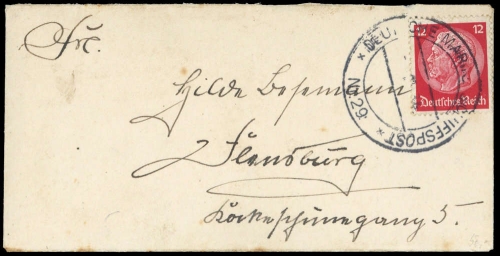 Frl.
Hilde Bosemann
Flensburg
5.
12 12
Deutsches Reich
* DEUTSCHE MARINE-SCHIFFSPOST *
No 29